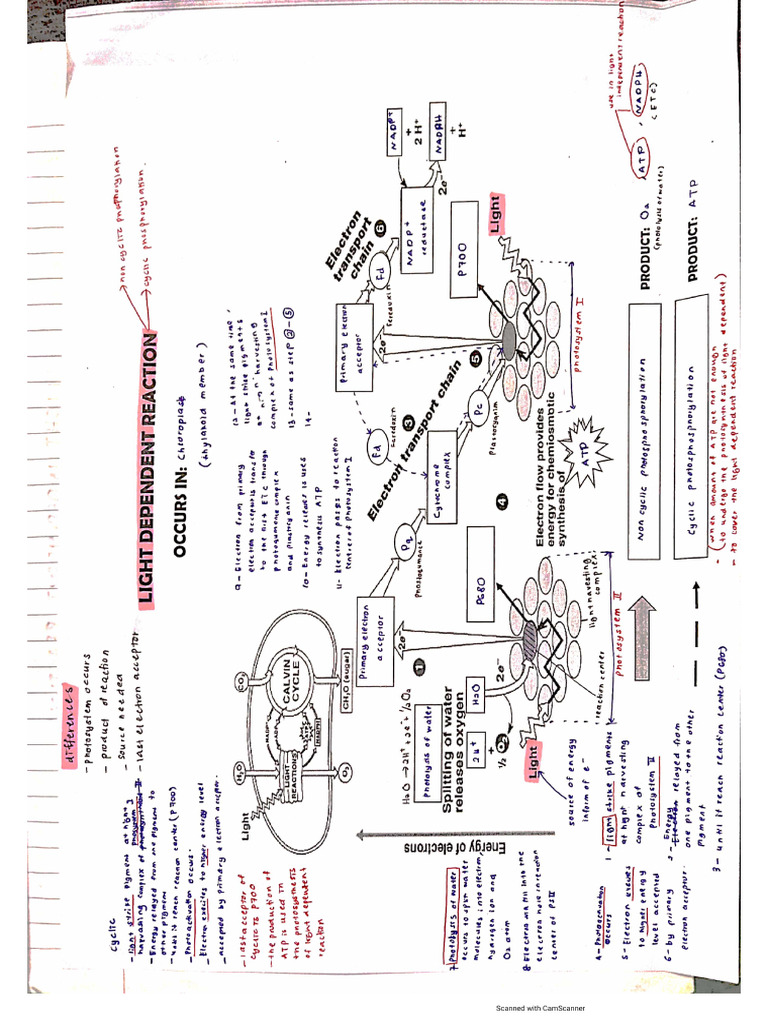 differences
- photosystem occurs
- product of reaction
- source needed
- last electron acceptor
LIGHT DEPENDENT REACTION
non cyclic phosphorylation
cyclic phosphorylation.
OCCURS IN: Chloroplast
(thylakoid member)
cyclic
- light strike pigment at light
harvesting complex of
photosystem I
- Energy relayed from one pigment to
other pigment
- until it reach reaction center (P700)
- Photoactivation occurs.
- Electron excites to higher energy level
- accepted by primary electron acceptor.
- last acceptor of
cyclic is P700
- the production of
ATP is used in
the photosynthesis
of light dependent
reaction
Light
H₂O
CO₂
LIGHT
REACTIONS
NADP⁺
ADP
ATP
NADPH
CALVIN
CYCLE
O₂
CH₂O (sugar)
9 - Electron from primary
electron acceptor is transfer
to the first ETC through
complex
and plastocyanin
10 - Energy releases is used
to synthesis ATP
11 - Electron passes to reaction
centre of Photosystem I
12 - At the same time,
light strike pigments
at light harvesting
complex of Photosystem I
13 - same as step ② - ⑤
14 -
Energy of electrons
7 Photolysis of water
occurs to split water
molecules, into electron,
hydrogen ion and
O₂ atom
8. Electron in to the
electron hole in reaction
center of PSII
H₂O → 2H⁺ + 2e⁻ + ½O₂
Photolysis of water
Splitting of water
releases oxygen
H₂O
2H⁺
+
½ O₂
2e⁻
Light
source of energy
inform of e⁻
1
Primary electron
acceptor
2e⁻
P680
reaction center
light harvesting
complex
photosystem II
Pq
3
Electron transport chain
Cytochrome
complex
Fd
Ferredoxin
4
Electron flow provides
energy for chemiosmotic
synthesis of
ATP
Pc
plastocyanin
5
Primary electron
acceptor
2e⁻
Fd
Ferredoxin
Electron
transport
chain
6
NADP⁺
reductase
NADP⁺
+
2 H⁺
2e⁻
NADPH
+
H⁺
P700
Light
photosystem I
1 - light strike pigments
at light harvesting
complex of
Photosystem II
2 - Energy
relayed from
one pigment to the other
pigment
3 - until it reach reaction center (P680)
4 - Photoactivation
occurs
5 - Electron excites
to higher energy
level accepted
6 - by primary
electron acceptor.
Non cyclic photophosphorylation
PRODUCT: O₂ , ATP , NADPH
(photolysis of water)
(ETC)
use in light
independent reaction
Cyclic photophosphorylation
PRODUCT: ATP
- (when amount of ATP are not enough
to undergo the photosynthesis of light dependent)
- to cover the light dependent reaction
Scanned with CamScanner